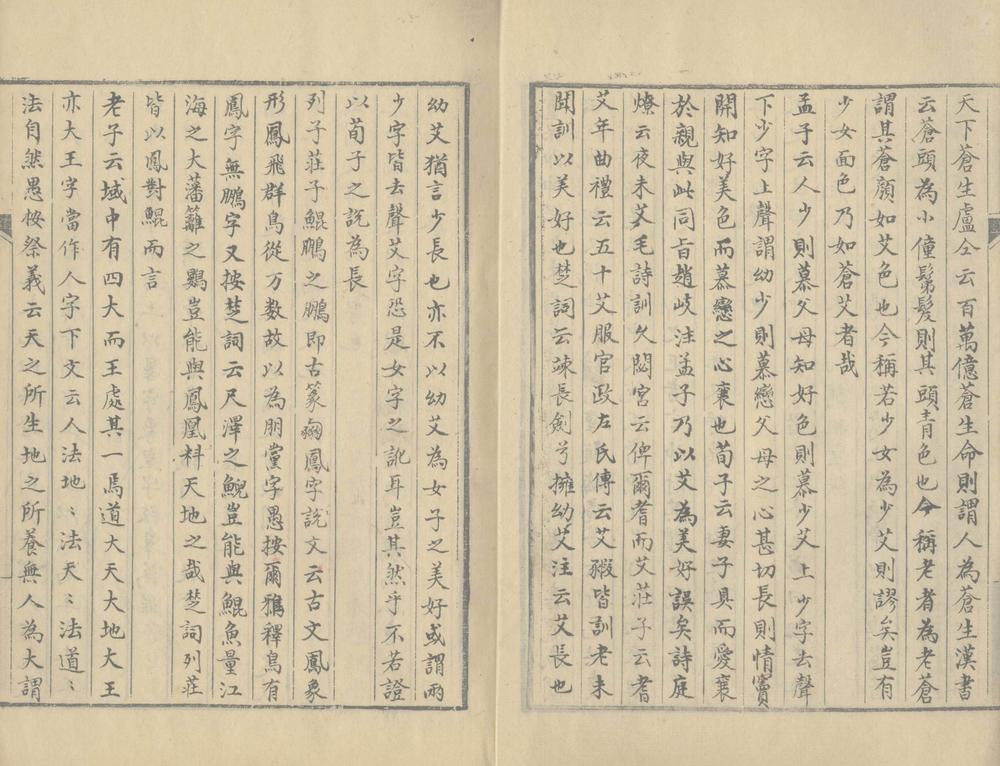 天下蒼生盧仝云百萬億蒼生命則謂人為蒼生漢書
云蒼頭為小僮鬢髮則其頭青色也今稱老者為老蒼
謂其蒼顏如艾色也今稱若少女為少艾則謬矣豈有
少女面色乃如蒼艾者哉
孟子云人少則慕父母知好色則慕少艾上少字去聲
下少字上聲謂幼少則慕戀父母之心甚切長則情竇
開知好美色而慕戀之心衰也荀子云妻子具而愛衰
於親與此同旨趙岐注孟子乃以艾為美好誤矣詩庭
燎云夜未艾毛詩訓久閟宮云俾爾耆而艾莊子云耆
艾年曲禮云五十艾服官政左氏傳云艾豭皆訓老未
聞訓以美好也楚詞云竦長劍兮擁幼艾注云艾長也
幼艾猶言少長也亦不以幼艾為女子之美好或謂兩
少字皆去聲艾字恐是女字之訛耳豈其然乎不若證
以荀子之說為長
列子莊子鯤鵬之鵬即古篆鳳字說文云古文鳳象
形鳳飛群鳥從万數故以為朋黨字愚按爾雅釋鳥有
鳳字無鵬字又按楚詞云尺澤之鯢豈能與鯤魚量江
海之大藩籬之鷃豈能與鳳凰料天地之哉楚詞列莊
皆以鳳對鯤而言
老子云域中有四大而王處其一焉道大天大地大王
亦大王字當作人字下文云人法地〻法天〻法道〻
法自然愚按祭義云天之所生地之所養無人為大謂